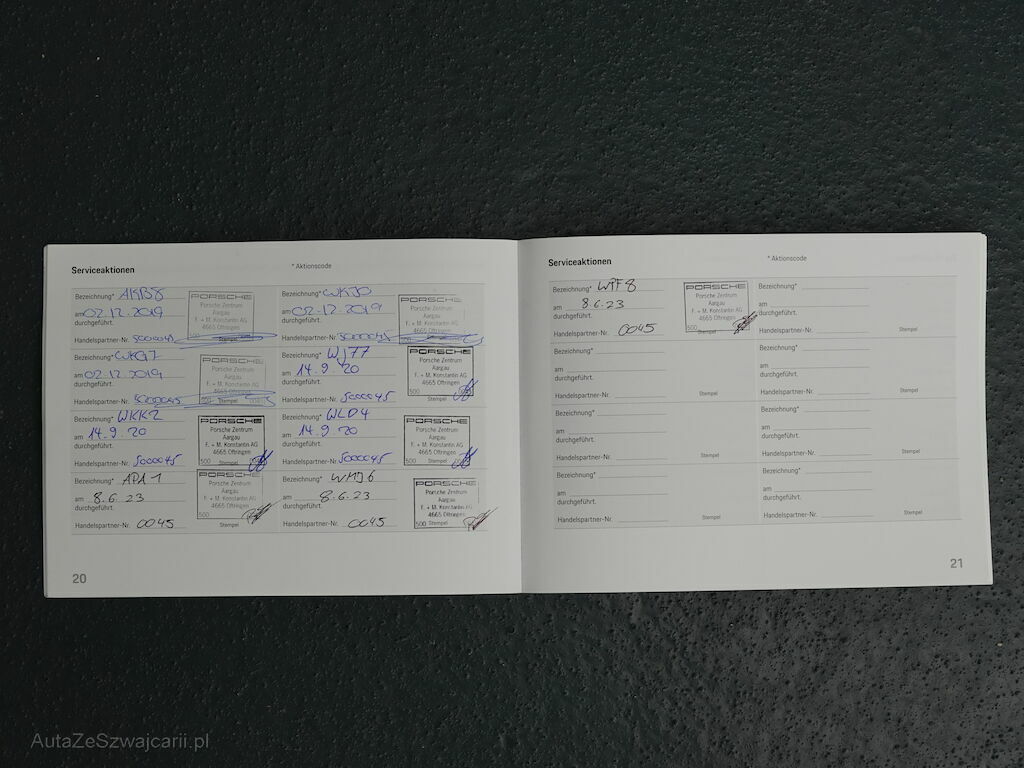 Serviceaktionen
* Aktionscode
Bezeichnung* AKB8
am 02.12.2019
durchgeführt.
Handelspartner-Nr.
PORSCHE
Porsche Zentrum
Aargau
F. + M. Konstantin AG
4665 Oftringen
Stempel
Bezeichnung* WKJ0
am 02.12.2019
durchgeführt.
Handelspartner-Nr. 5000045
PORSCHE
Porsche Zentrum
Aargau
F. + M. Konstantin AG
4665 Oftringen
Bezeichnung*
am 02.12.2019
durchgeführt.
Handelspartner-Nr. 5000045
PORSCHE
Porsche Zentrum
Aargau
F. + M. Konstantin AG
4665 Oftringen
Stempel
Bezeichnung* WJ77
am 14.9.20
durchgeführt.
Handelspartner-Nr. 5000045
PORSCHE
Porsche Zentrum
Aargau
F. + M. Konstantin AG
4665 Oftringen
500
Stempel
Bezeichnung* WKK2
am 14.9.20
durchgeführt.
Handelspartner-Nr. 5000045
PORSCHE
Porsche Zentrum
Aargau
F. + M. Konstantin AG
4665 Oftringen
500 Stempel
Bezeichnung* WLD4
am 14.9.20
durchgeführt.
Handelspartner-Nr. 5000045
PORSCHE
Porsche Zentrum
Aargau
F. + M. Konstantin AG
4665 Oftringen
500 Stempel
Bezeichnung* APA1
am 8.6.23
durchgeführt.
Handelspartner-Nr. 0045
PORSCHE
Porsche Zentrum
Aargau
F. + M. Konstantin AG
4665 Oftringen
500
Stempel
Bezeichnung* WMJ6
am 8.6.23
durchgeführt.
Handelspartner-Nr. 0045
PORSCHE
Porsche Zentrum
Aargau
F. + M. Konstantin AG
4665 Oftringen
500 Stempel
20
Serviceaktionen
* Aktionscode
Bezeichnung* WPF8
am 8.6.23
durchgeführt.
Handelspartner-Nr. 0045
PORSCHE
Porsche Zentrum
Aargau
F. + M. Konstantin AG
4665 Oftringen
500
Stempel
Bezeichnung*
am
durchgeführt.
Handelspartner-Nr.
Stempel
Bezeichnung*
am
durchgeführt.
Handelspartner-Nr.
Stempel
Bezeichnung*
am
durchgeführt.
Handelspartner-Nr.
Stempel
Bezeichnung*
am
durchgeführt.
Handelspartner-Nr.
Stempel
Bezeichnung*
am
durchgeführt.
Handelspartner-Nr.
Stempel
Bezeichnung*
am
durchgeführt.
Handelspartner-Nr.
Stempel
Bezeichnung*
am
durchgeführt.
Handelspartner-Nr.
Stempel
21
AutaZeSzwajcarii.pl